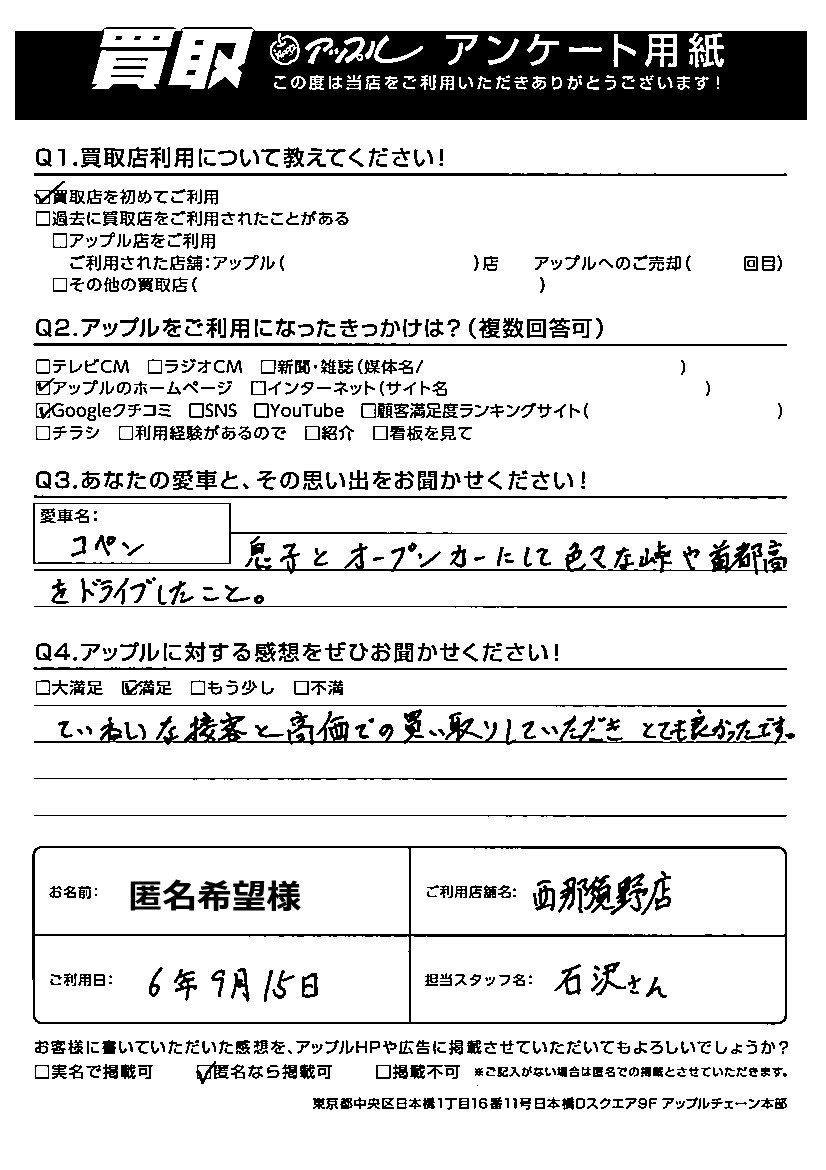 買取 アップル アンケート用紙
この度は当店をご利用いただきありがとうございます!
Q1.買取店利用について教えてください!
☑買取店を初めてご利用
□過去に買取店をご利用されたことがある
□アップル店をご利用
ご利用された店舗:アップル( )店 アップルへのご売却( 回目)
□その他の買取店( )
Q2.アップルをご利用になったきっかけは?(複数回答可)
□テレビCM □ラジオCM □新聞・雑誌(媒体名/ )
☑アップルのホームページ □インターネット(サイト名 )
☑Googleクチコミ □SNS □YouTube □顧客満足度ランキングサイト( )
□チラシ □利用経験があるので □紹介 □看板を見て
Q3.あなたの愛車と、その思い出をお聞かせください!
愛車名:
コペン
息子とオープンカーにして色々な峠や首都高
をドライブしたこと。
Q4.アップルに対する感想をぜひお聞かせください!
□大満足 ☑満足 □もう少し □不満
ていねいな接客と高価での買い取りしていただきとても良かったです。
お名前: 匿名希望様 ご利用店舗名: 西那須野店
ご利用日: 6年9月15日 担当スタッフ名: 石沢さん
お客様に書いていただいた感想を、アップルHPや広告に掲載させていただいてもよろしいでしょうか?
□実名で掲載可 ☑匿名なら掲載可 □掲載不可 ※ご記入がない場合は匿名での掲載とさせていただきます。
東京都中央区日本橋1丁目16番11号日本橋Dスクエア9F アップルチェーン本部